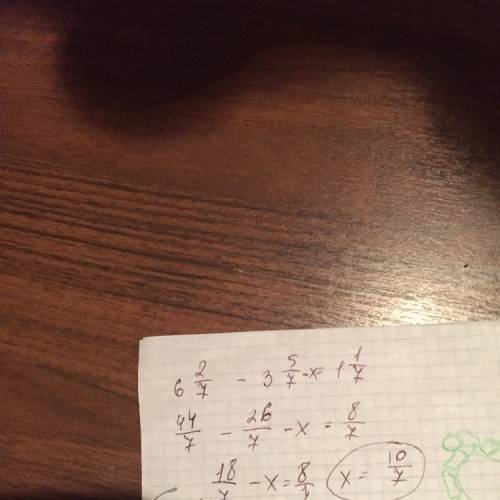 6 2/7 - 3 5/7 - x = 1 1/7
44/7 - 26/7 - x = 8/7
18/7 - x = 8/7 x = 10/7